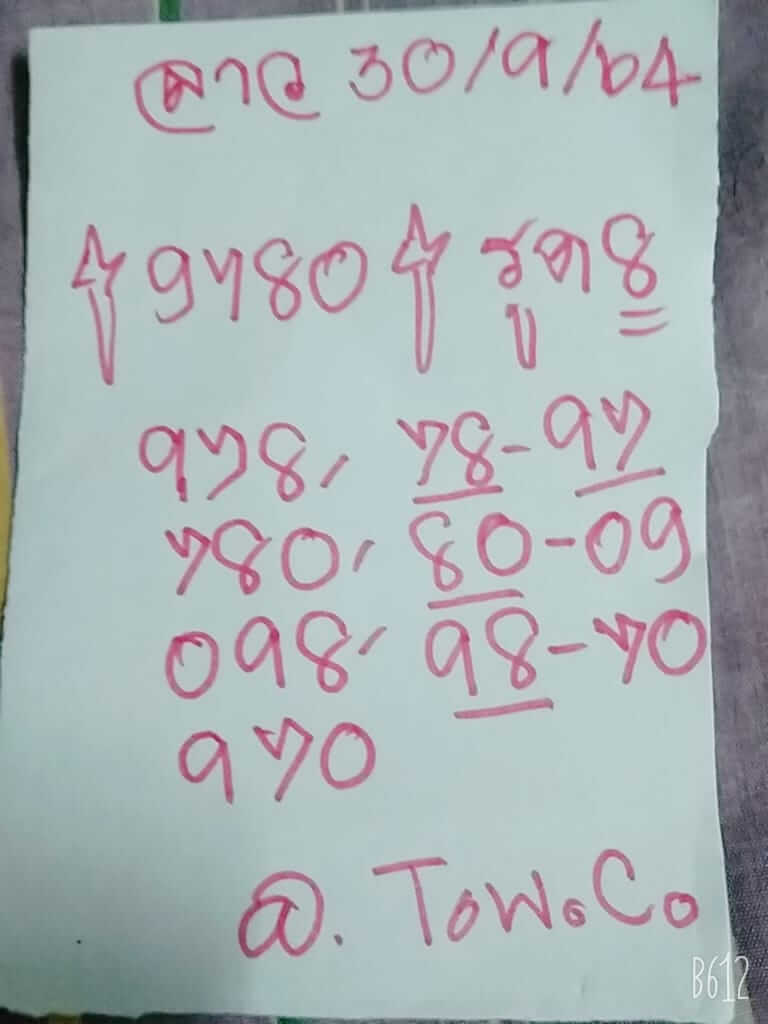 ลาว 30/9/64
9780 รูด 8
978, 78-97
780, 80-09
098, 98-70
970
@. Tow.Co
B612